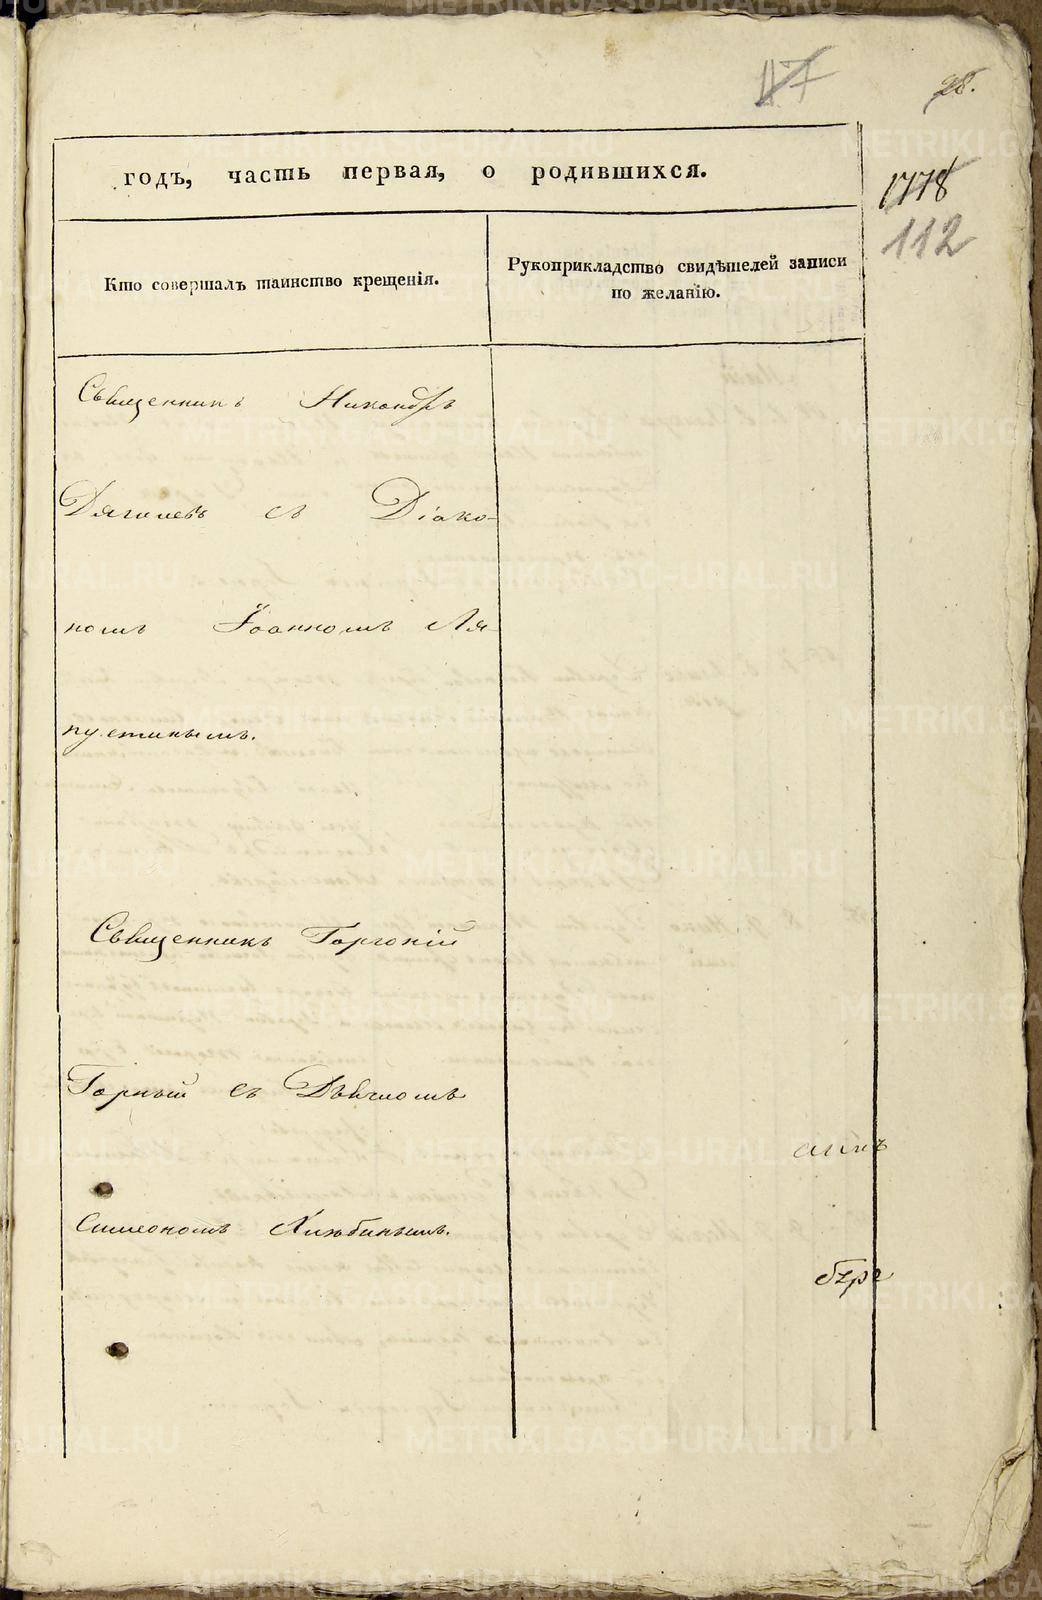 117
98.
годъ, часть первая, о родившихся.
1778
112
Кто совершалъ таинство крещенія.
Рукоприкладство свидѣтелей записи
по желанію.
Священникъ Никандръ
Дягилевъ съ Діако-
номъ Іоанномъ Ля-
пустинымъ.
Священникъ Горгоній
Горный съ Дьячкомъ
Симеономъ Хлюбинымъ.
METRIKI.GASO-URAL.RU